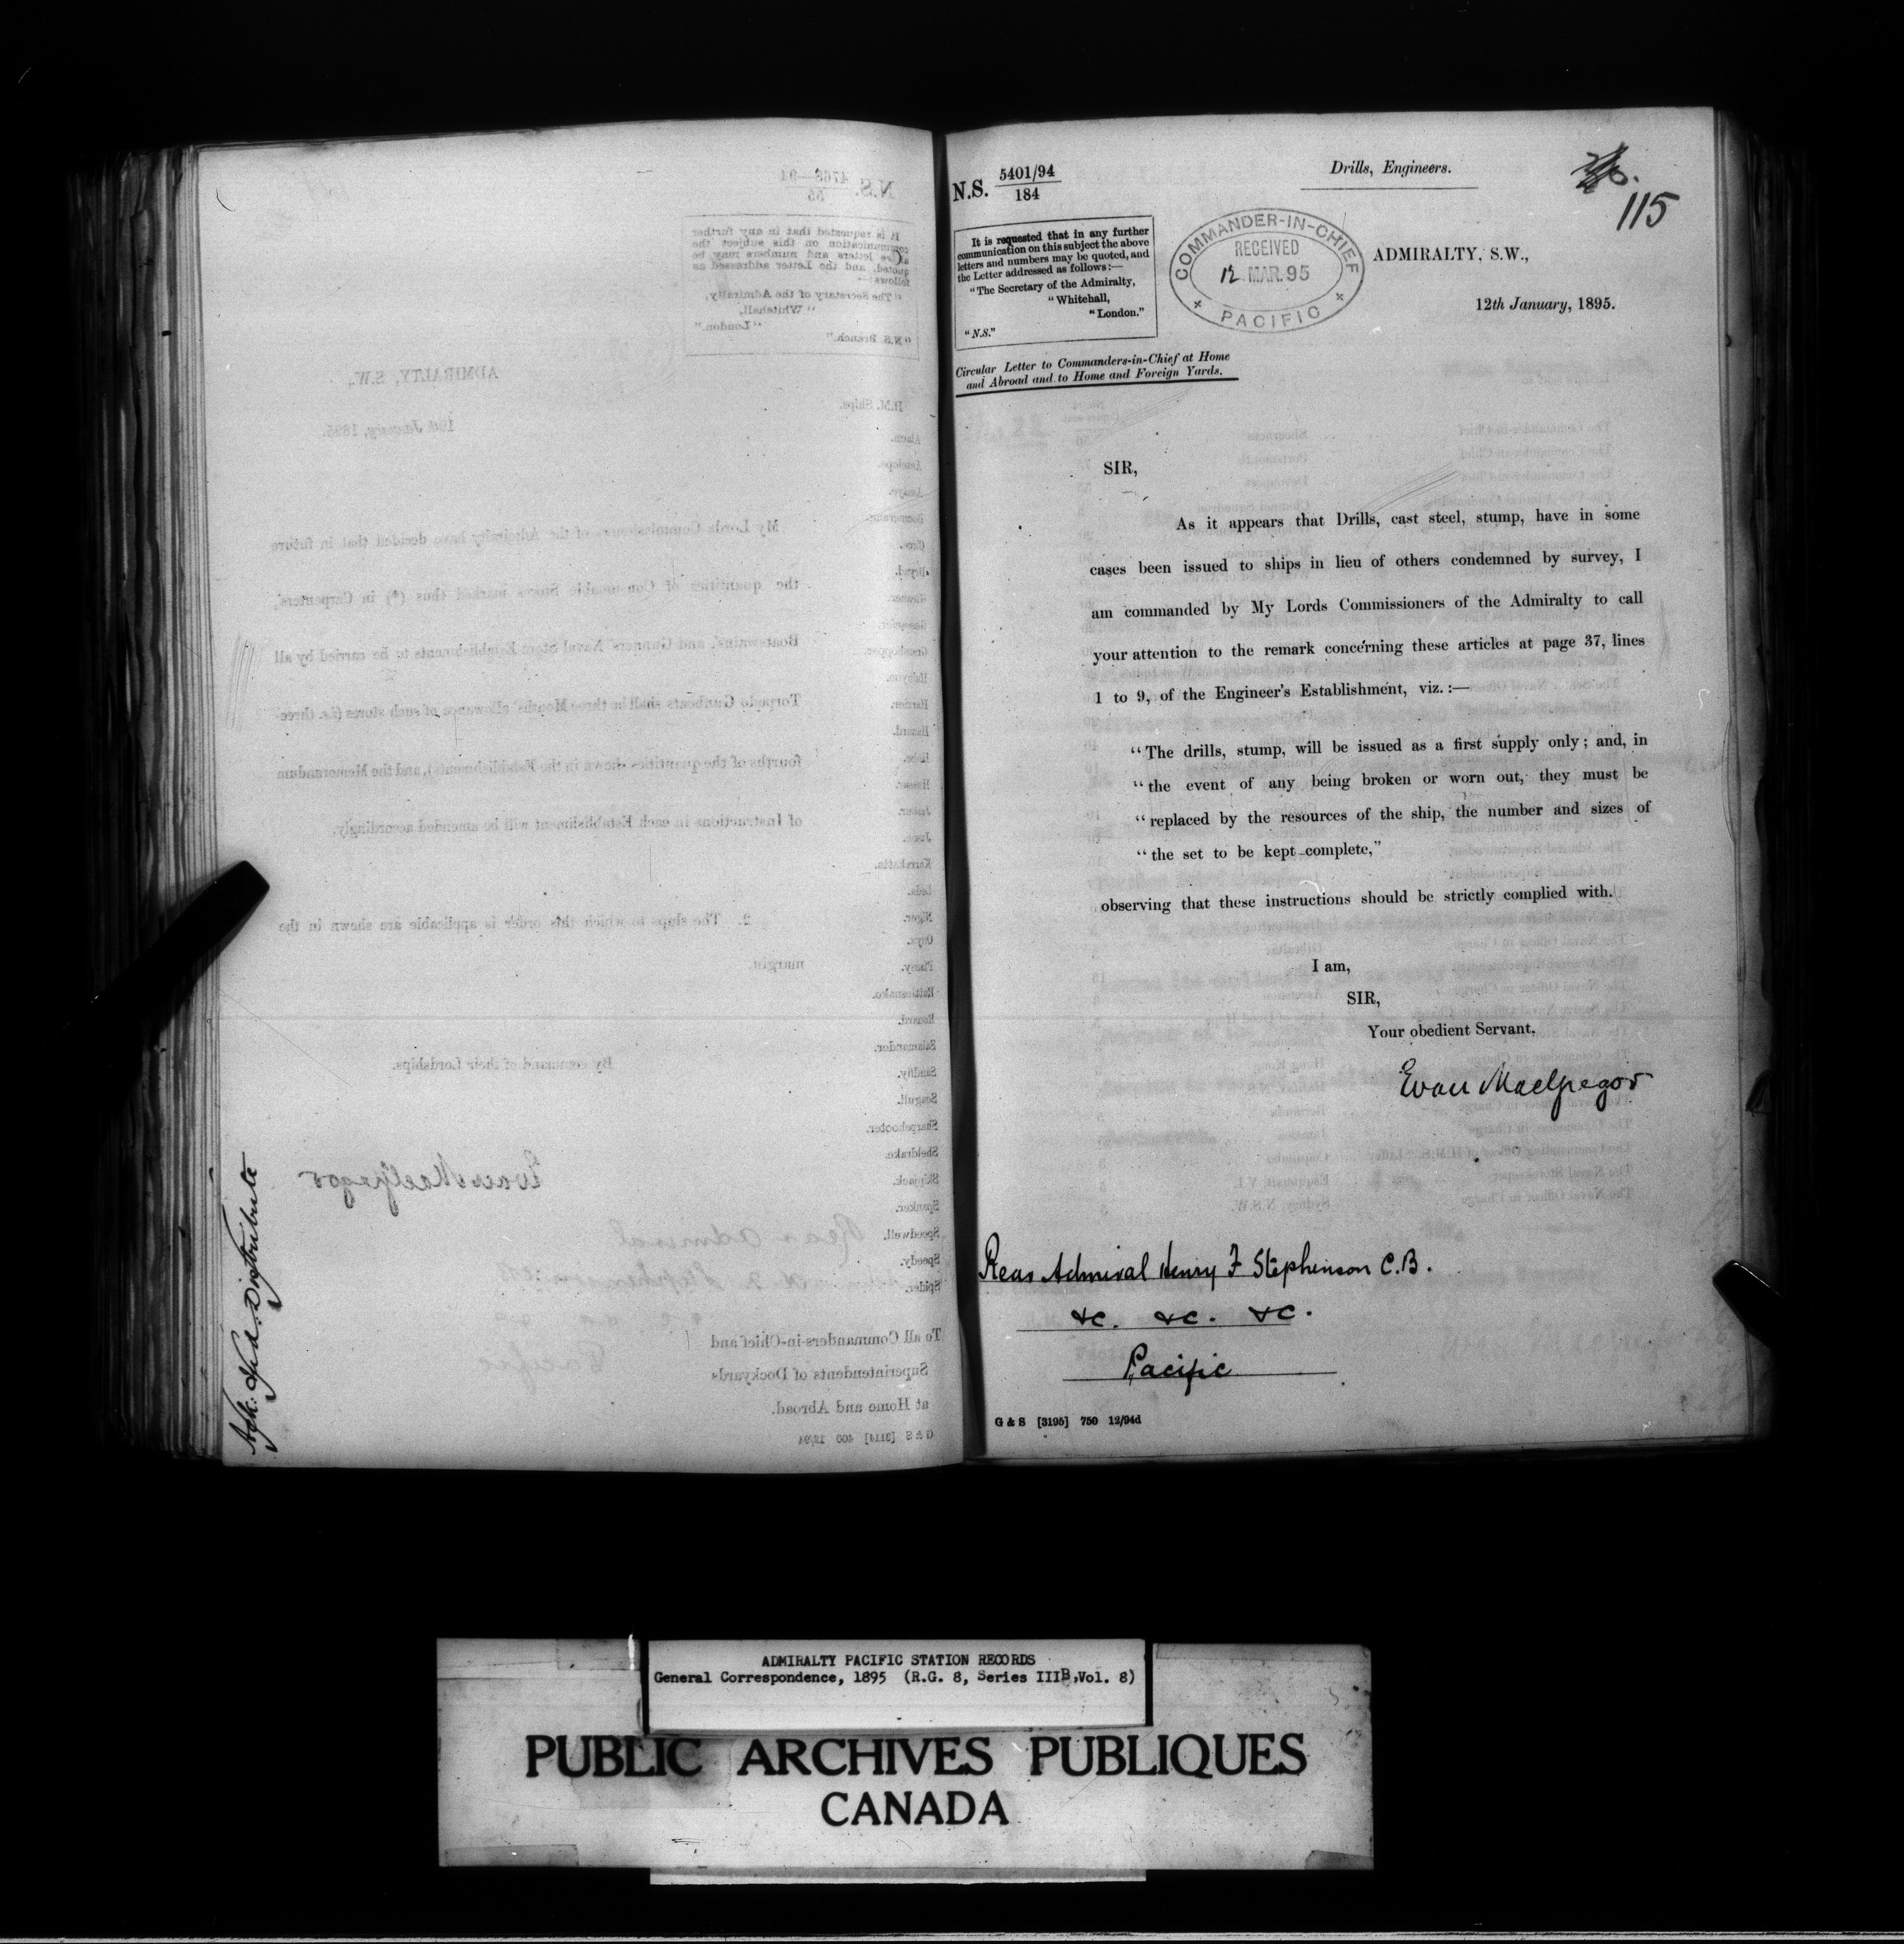 Ack: & Distribute
N.S. 5401/94
184
Drills, Engineers.
115
It is requested that in any further
communication on this subject the above
letters and numbers may be quoted, and
the Letter addressed as follows:—
"The Secretary of the Admiralty,
"Whitehall,
"London."
"N.S."
COMMANDER-IN-CHIEF
RECEIVED
12 MAR. 95
PACIFIC
ADMIRALTY, S.W.,
12th January, 1895.
Circular Letter to Commanders-in-Chief at Home
and Abroad and to Home and Foreign Yards.
SIR,
As it appears that Drills, cast steel, stump, have in some
cases been issued to ships in lieu of others condemned by survey, I
am commanded by My Lords Commissioners of the Admiralty to call
your attention to the remark concerning these articles at page 37, lines
1 to 9, of the Engineer's Establishment, viz.:—
"The drills, stump, will be issued as a first supply only; and, in
"the event of any being broken or worn out, they must be
"replaced by the resources of the ship, the number and sizes of
"the set to be kept complete,"
observing that these instructions should be strictly complied with.
I am,
SIR,
Your obedient Servant,
Evan MacGregor
Rear Admiral Henry F Stephenson C.B.
&c. &c. &c.
Pacific
G & S [3195] 750 12/94d
ADMIRALTY PACIFIC STATION RECORDS
General Correspondence, 1895 (R.G. 8, Series IIIB, Vol. 8)
PUBLIC ARCHIVES PUBLIQUES
CANADA